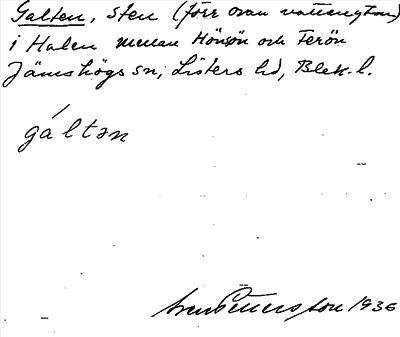 Galten, sten (förr ovan vattenytan)
i Halen mellan Hönsön och Ferön
Jämshögs sn, Listers hd, Blek. l.
gáltən
Sven Petersson 1936